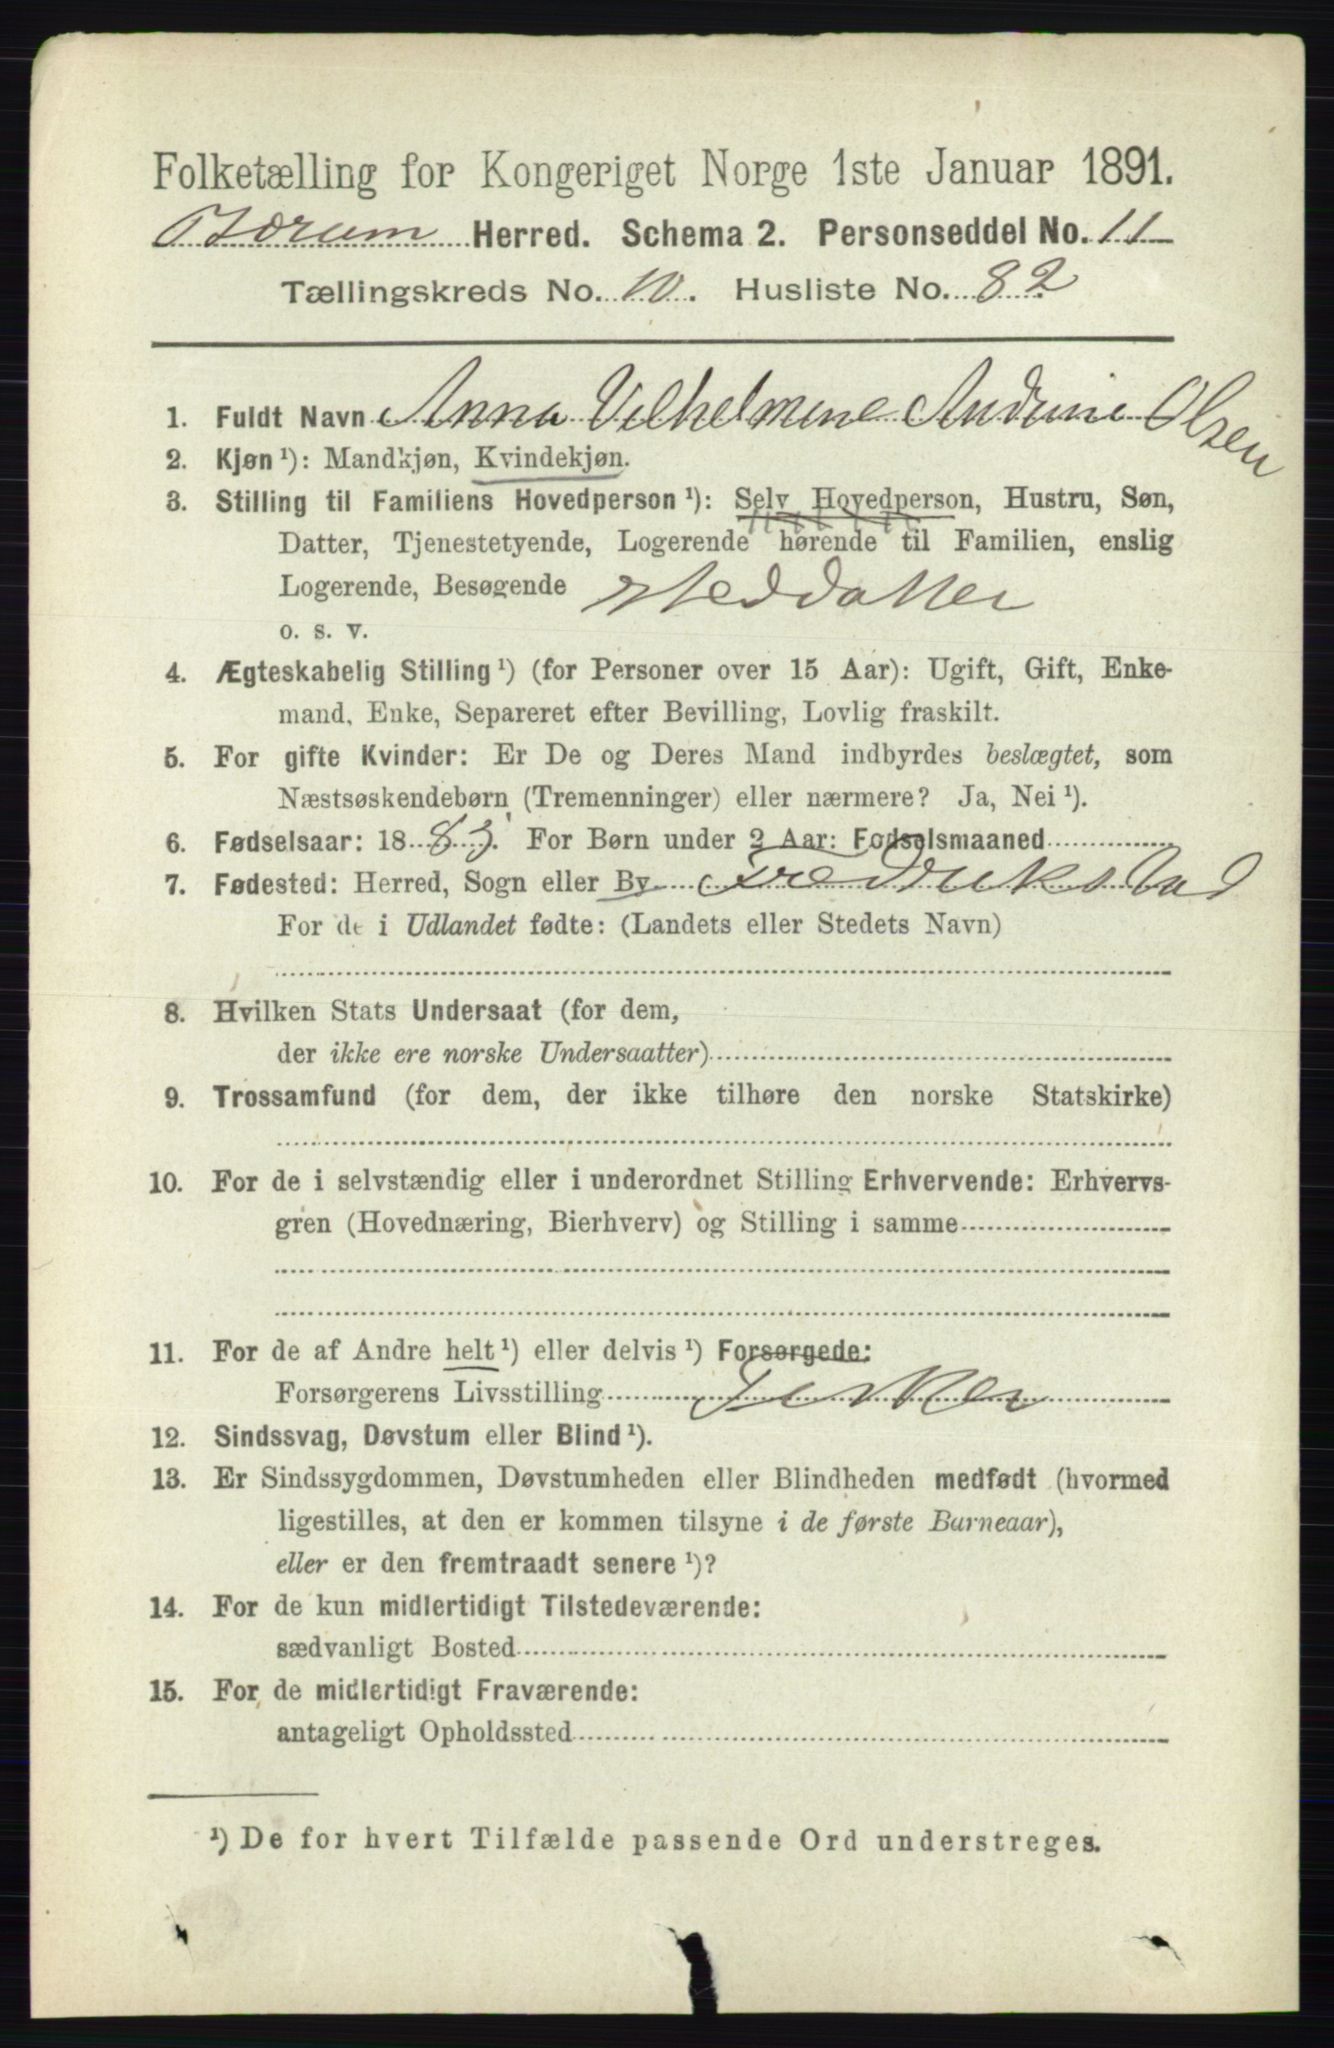 Folketælling for Kongeriget Norge 1ste Januar 1891.
Bærum Herred. Schema 2. Personseddel No. 11
Tællingskreds No. 10. Husliste No. 82
1. Fuldt Navn Anna Vilhelmine Andrine Olsen
2. Kjøn ¹): Mandkjøn, Kvindekjøn.
3. Stilling til Familiens Hovedperson ¹): Selv Hovedperson, Hustru, Søn,
Datter, Tjenestetyende, Logerende hørende til Familien, enslig
Logerende, Besøgende Steddatter
o. s. v.
4. Ægteskabelig Stilling ¹) (for Personer over 15 Aar): Ugift, Gift, Enke-
mand, Enke, Separeret efter Bevilling, Lovlig fraskilt.
5. For gifte Kvinder: Er De og Deres Mand indbyrdes beslægtet, som
Næstsøskendebørn (Tremenninger) eller nærmere? Ja, Nei ¹).
6. Fødselsaar: 1883. For Børn under 2 Aar: Fødselsmaaned
7. Fødested: Herred, Sogn eller By Fredrikstad
For de i Udlandet fødte: (Landets eller Stedets Navn)
8. Hvilken Stats Undersaat (for dem,
der ikke ere norske Undersaatter)
9. Trossamfund (for dem, der ikke tilhøre den norske Statskirke)
10. For de i selvstændig eller i underordnet Stilling Erhvervende: Erhvervs-
gren (Hovednæring, Bierhverv) og Stilling i samme
11. For de af Andre helt ¹) eller delvis ¹) Forsørgede:
Forsørgerens Livsstilling
12. Sindssvag, Døvstum eller Blind ¹).
13. Er Sindssygdommen, Døvstumheden eller Blindheden medfødt (hvormed
ligestilles, at den er kommen tilsyne i de første Barneaar),
eller er den fremtraadt senere ¹)?
14. For de kun midlertidigt Tilstedeværende:
sædvanligt Bosted
15. For de midlertidigt Fraværende:
antageligt Opholdssted
¹) De for hvert Tilfælde passende Ord understreges.